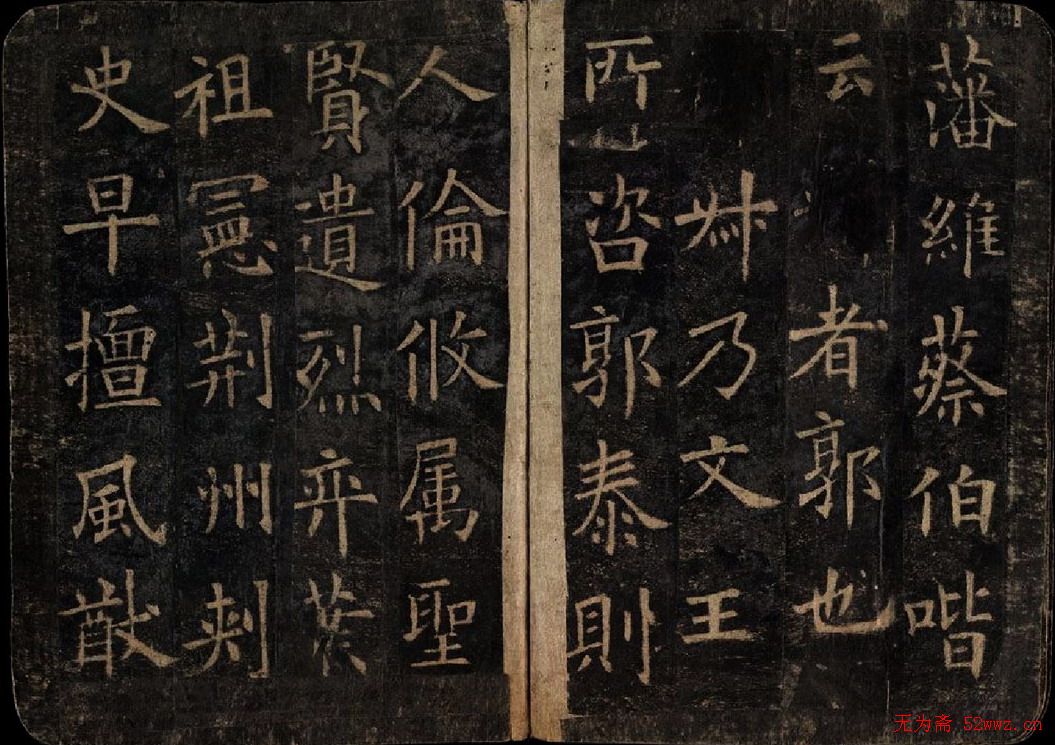 藩維蔡伯喈
云者郭也
叔乃文王
所咨郭泰則
人倫攸属聖
賢遺烈弈葉
祖憲荊州刾
史早擅風猷
无为斋 52wwz.cn